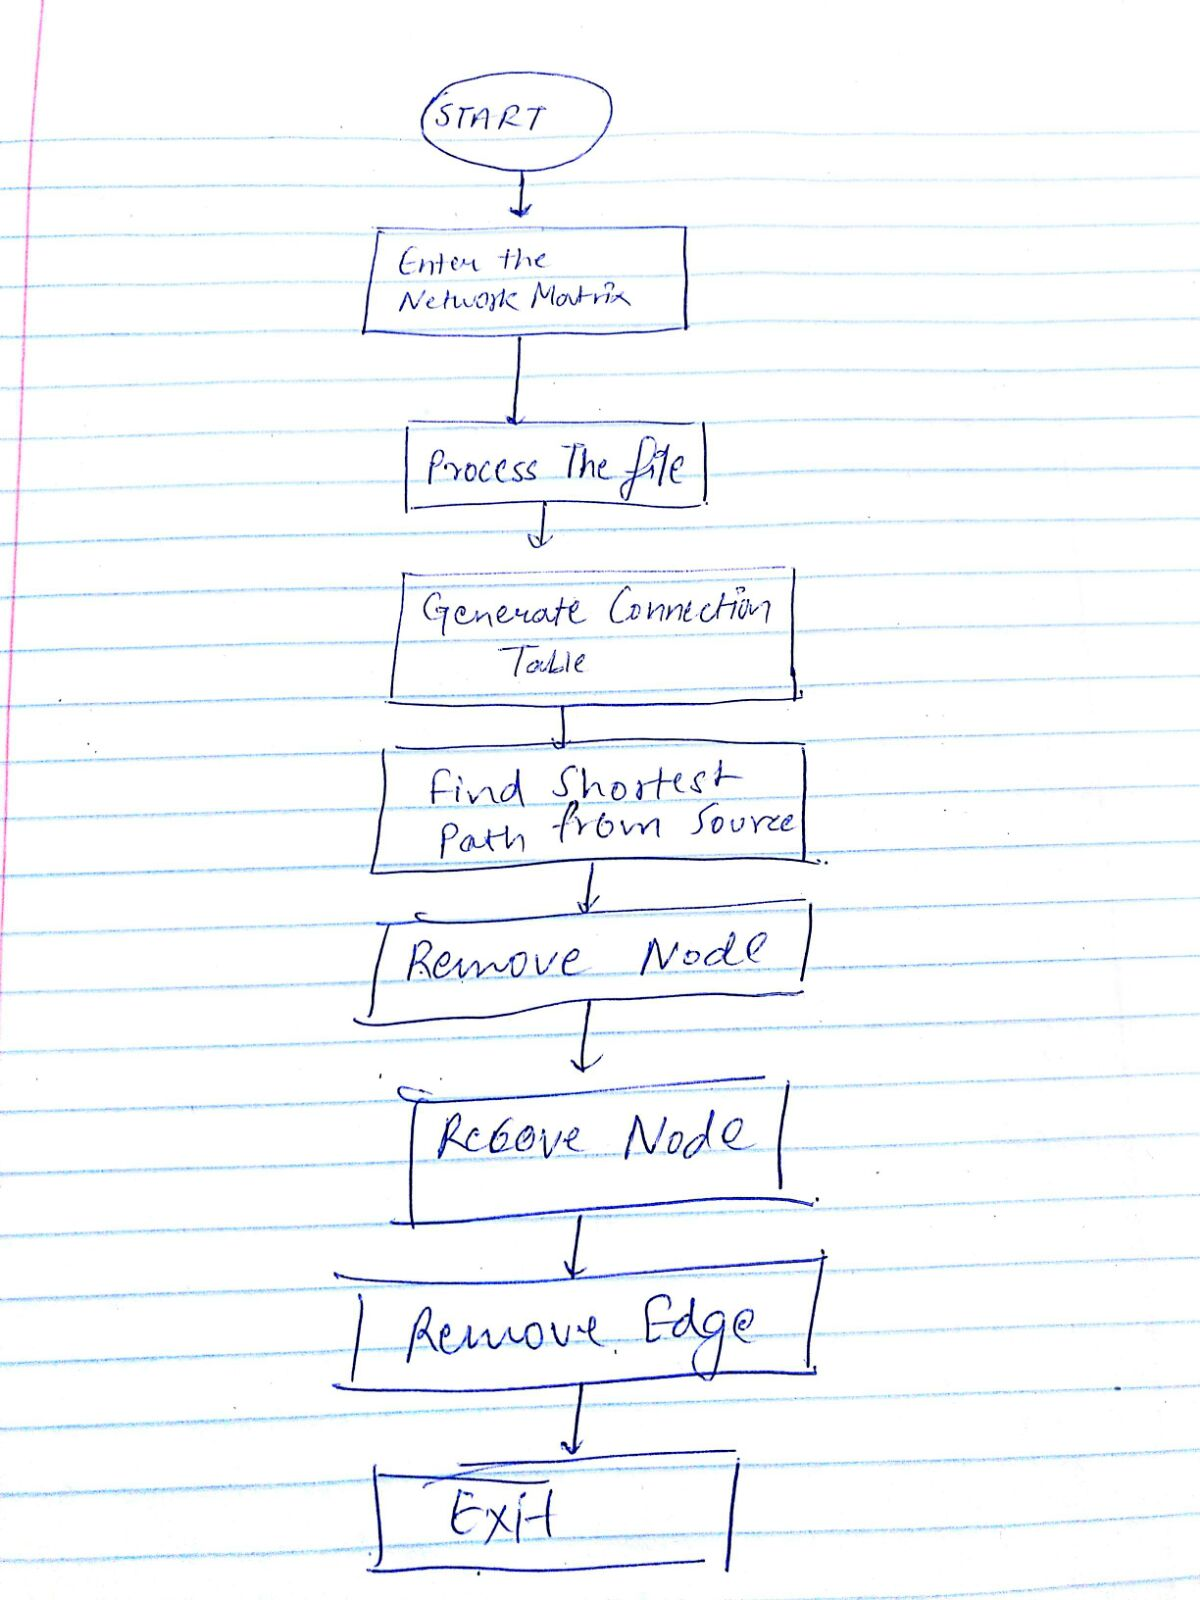 START
Enter the
Network Matrix
Process The file
Generate Connection
Table
Find Shortest
Path from Source
Remove Node
Node
Remove Edge
Exit